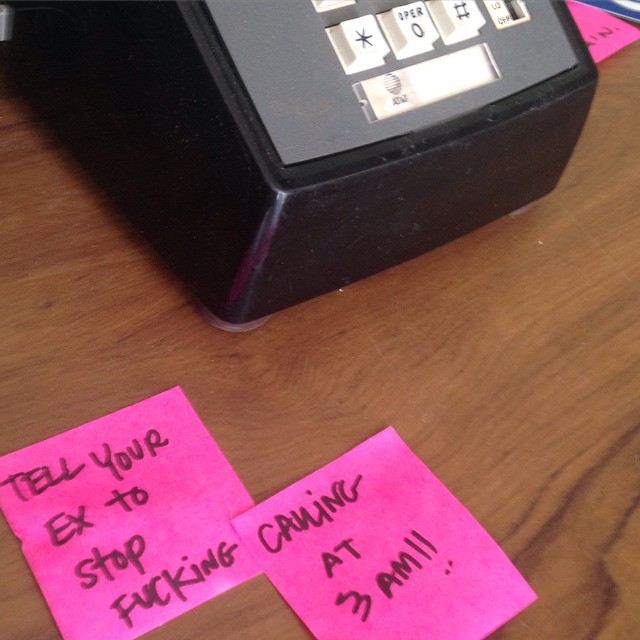 OPER
*
0
#
LO
OFF
AT&T
TELL YOUR
EX to
Stop
FUCKING
CALLING
AT
3 AM!!